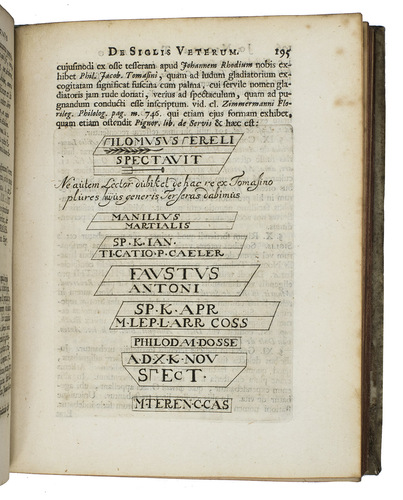 DE SIGLIS VETERUM. 195
cujusmodi ex osse tesseram apud Johannem Rhodium nobis ex-
hibet Phil. Jacob. Tomasini, quam ad ludum gladiatorium ex-
cogitatam significat fuscina cum palma, cui servile nomen gla-
diatoris jam rude donati, verius ad spectaculum, quam ad pu-
gnandum conducti esse inscriptum. vid. cl. Zimmermanni Flo-
rileg. Philolog. pag. m. 746. qui etiam ejus formam exhibet,
quam etiam ostendit Pignor. lib. de Servis & hæc est:
FILOMVSVS ERELI
SPECTAVIT
Ne autem Lector dubitet de hac re ex Tomasino
plures hujus generis Tesseras dabimus
MANILIVS
MARTIALIS
SP·K·IAN·
TI·CATIO·P·CAELER
FAVSTVS
ANTONI
SP·K·APR
M·LEP·L·ARR COSS
PHILODAM·DOSSE
A·D·X·K·NOV
SPECT·
M·TERENC·CAS